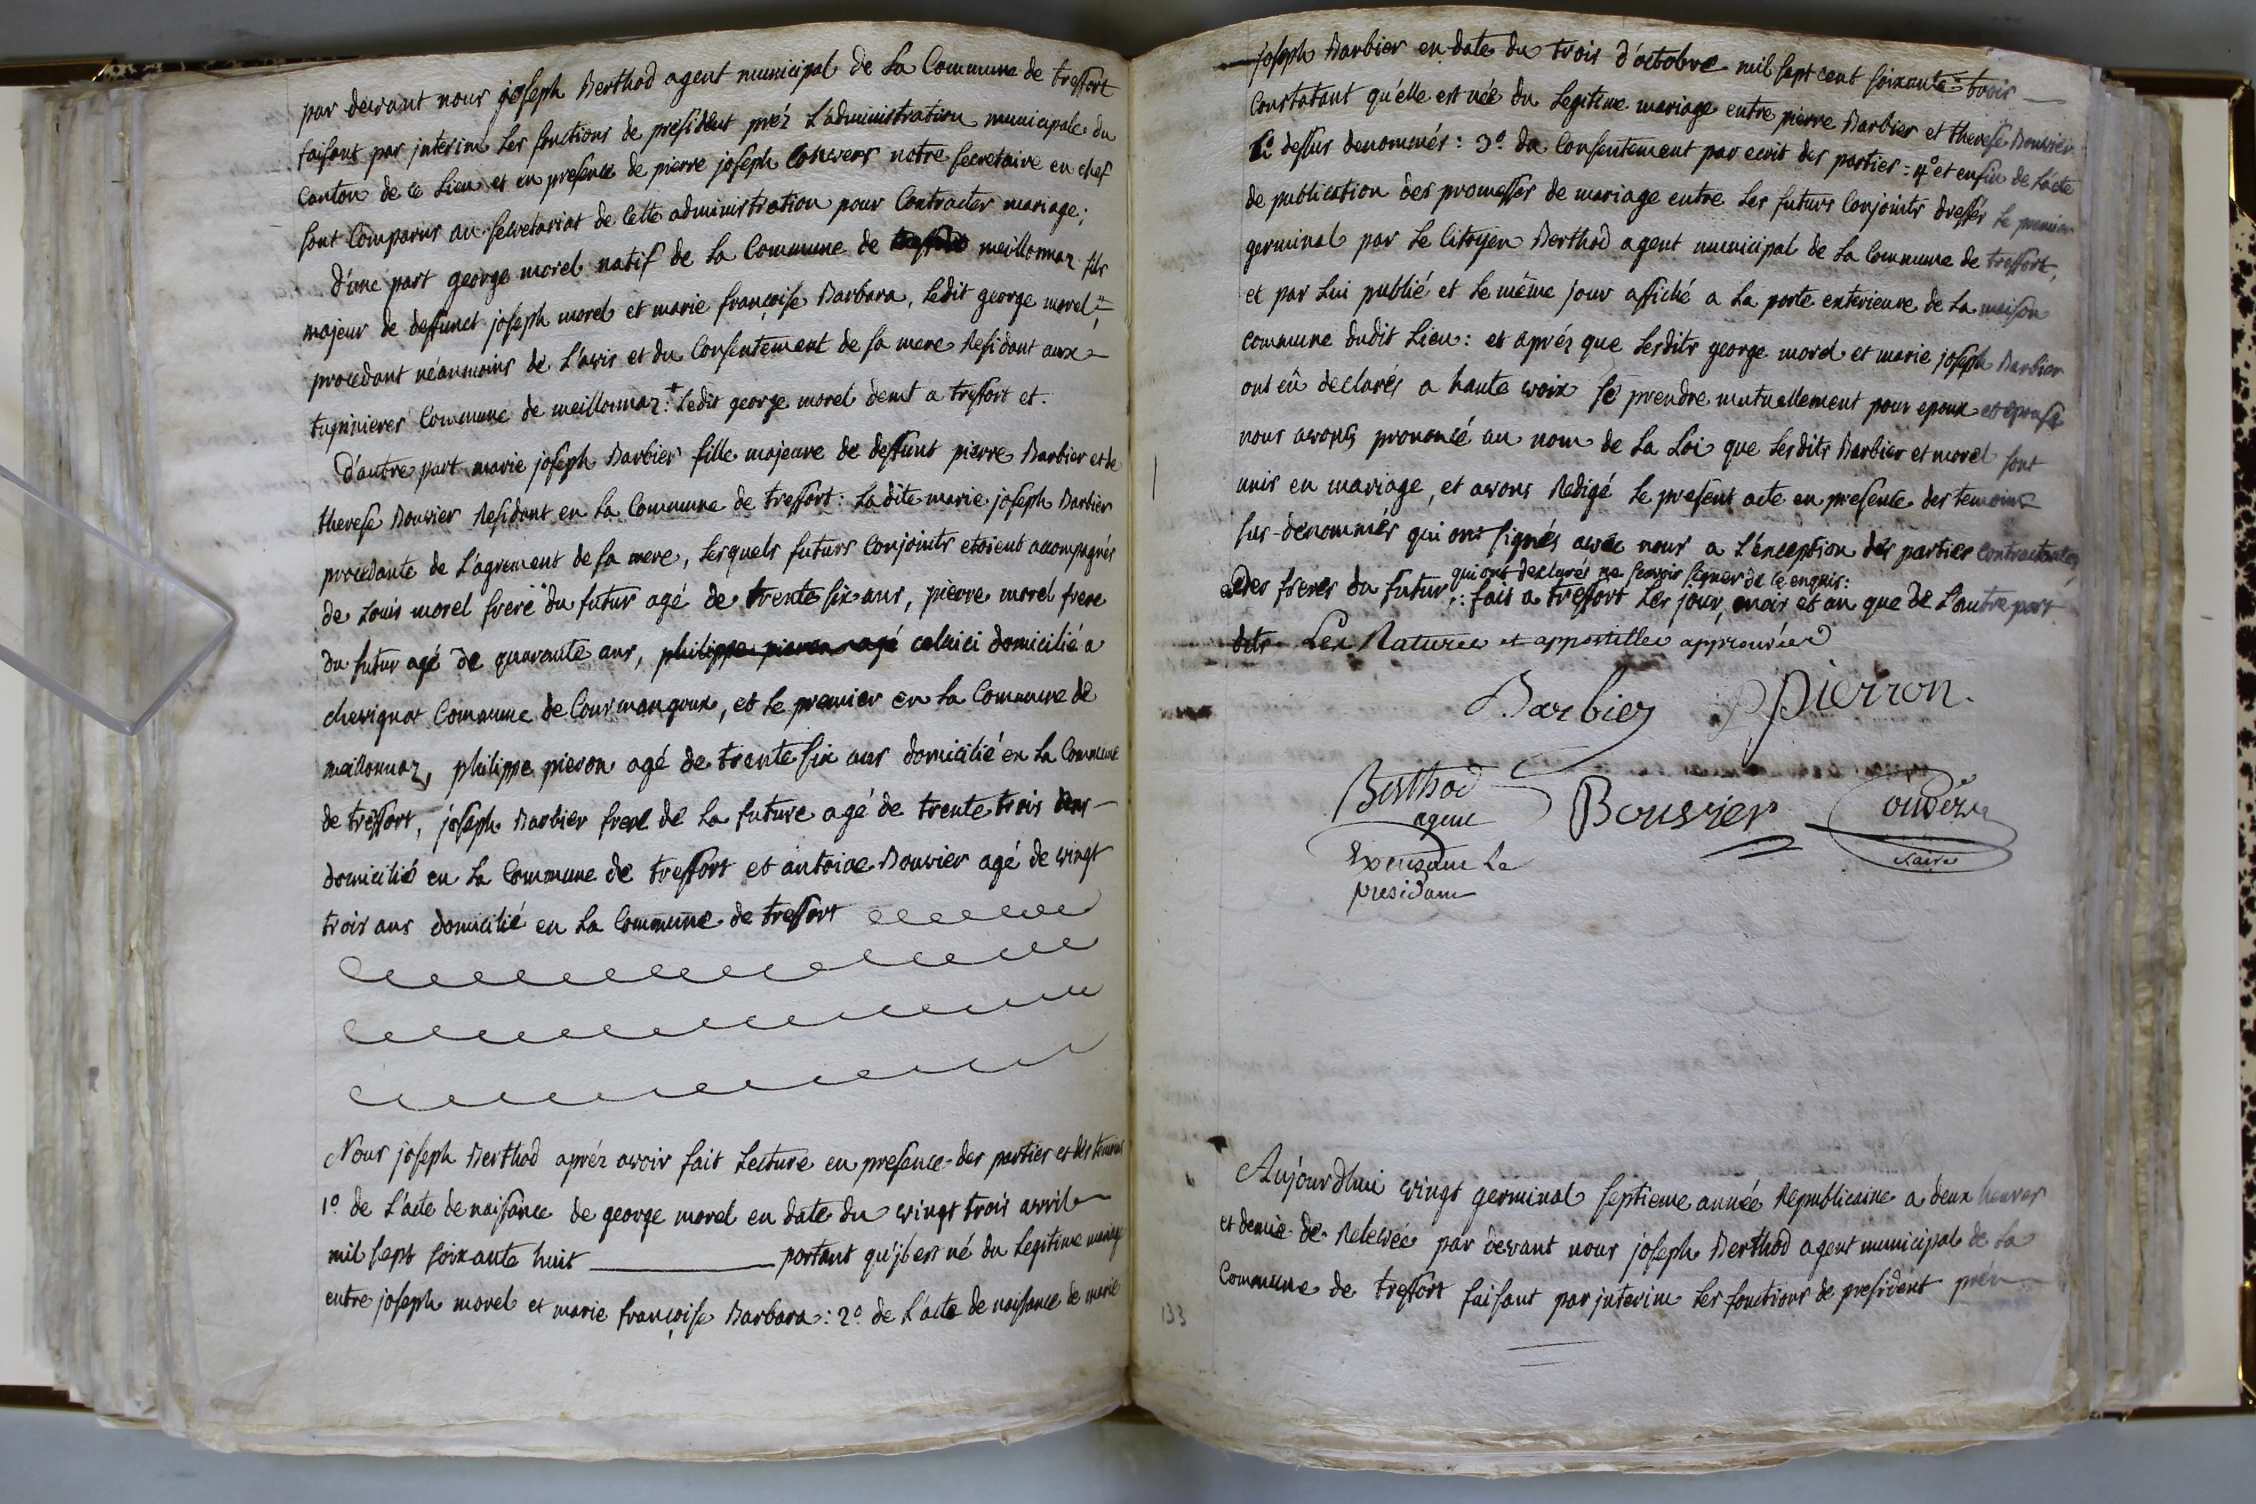 par devant nous joseph Berthod agent municipal de la Commune de treffort
faisant par jnterim les fonctions de president préz L'administration municipale du
Canton de ce Lieu et en presence de pierre joseph Convers notre secretaire en chef
sont Comparus au secretariat de Cette administration pour Contracter mariage;
d'une part george morel natif de la Commune de treffort meillonnaz fils
majeur de deffunct joseph morel et marie françoise Barbara, Ledit george morel
procedant néanmoins de L'avis et du Consentement de sa mere Residant aux
Commune de meillonnaz: + Ledit george morel demt a treffort et.
d'autre part marie joseph Barbier fille majeure de deffunt pierre Barbier et de
therese Bouvier Residant en La Commune de treffort: La dite marie joseph Barbier
procedante de L'agrement de sa mere, Lesquels futurs Conjoints etoient accompagnés
de Louis morel frere du futur agé de trente six ans, pierre morel frere
du futur agé de quarante ans, philippe pieron agé celuici domicilié a
chevignat Commune de Courmangoux, et Le premier en La Commune de
meillonnaz, philippe pieron agé de trente six ans domicilié en La Commune
de treffort, joseph Barbier frere de La future agé de trente trois ans
domicilié en La Commune de treffort et antoine Bouvier agé de vingt
trois ans domicilié en La Commune de treffort
Nous joseph Berthod apréz avoir fait Lecture en presence des parties et des temoins
1º de L'acte de naissance de george morel en date du vingt trois avril
mil sept soixante huit portant qu'jl est né du Legitime mariage
entre joseph morel et marie françoise Barbara: 2º de L'acte de naissance de marie
133
joseph Barbier en date du trois d'octobre mil sept cent soixante trois
Constatant qu'elle est née du Legitime mariage entre pierre Barbier et therese Bouvier
Ci dessus denommés: 3º du Consentement par ecrit des parties: 4º et enfin de L'acte
de publication des promesses de mariage entre Les futurs Conjoints dressés Le premier
germinal par Le Citoyen Berthod agent municipal de La Commune de treffort,
et par Lui publié et Le même jour affiché a La porte exterieure de La maison
commune dudit Lieu: et aprés que Lesdits george morel et marie joseph Barbier
ont eû declarés a haute voix se prendre mutuellement pour epoux et epouse
nous avons prononcé au nom de La Loi que Lesdits Barbier et morel sont
unis en mariage, et avons Redigé Le present acte en presence des temoins
sus-denommés qui ont signés avec nous a L'exception des parties contractantes
qui ont declarés ne scavoir signer de ce enquis:
et des freres du futur .: fait a treffort Les jour, mois et an que de L'autre part
dits Les Ratures et appostilles approuvées
Barbier PPierron.
Berthod Bouvier Convers
agent
Exersant Le
presidant
Aujourd'hui vingt germinal septieme année Republicaine a deux heures
et demie de Relevée par devant nous joseph Berthod agent municipal de La
Commune de treffort faisant par jnterim Les fonctions de president préz